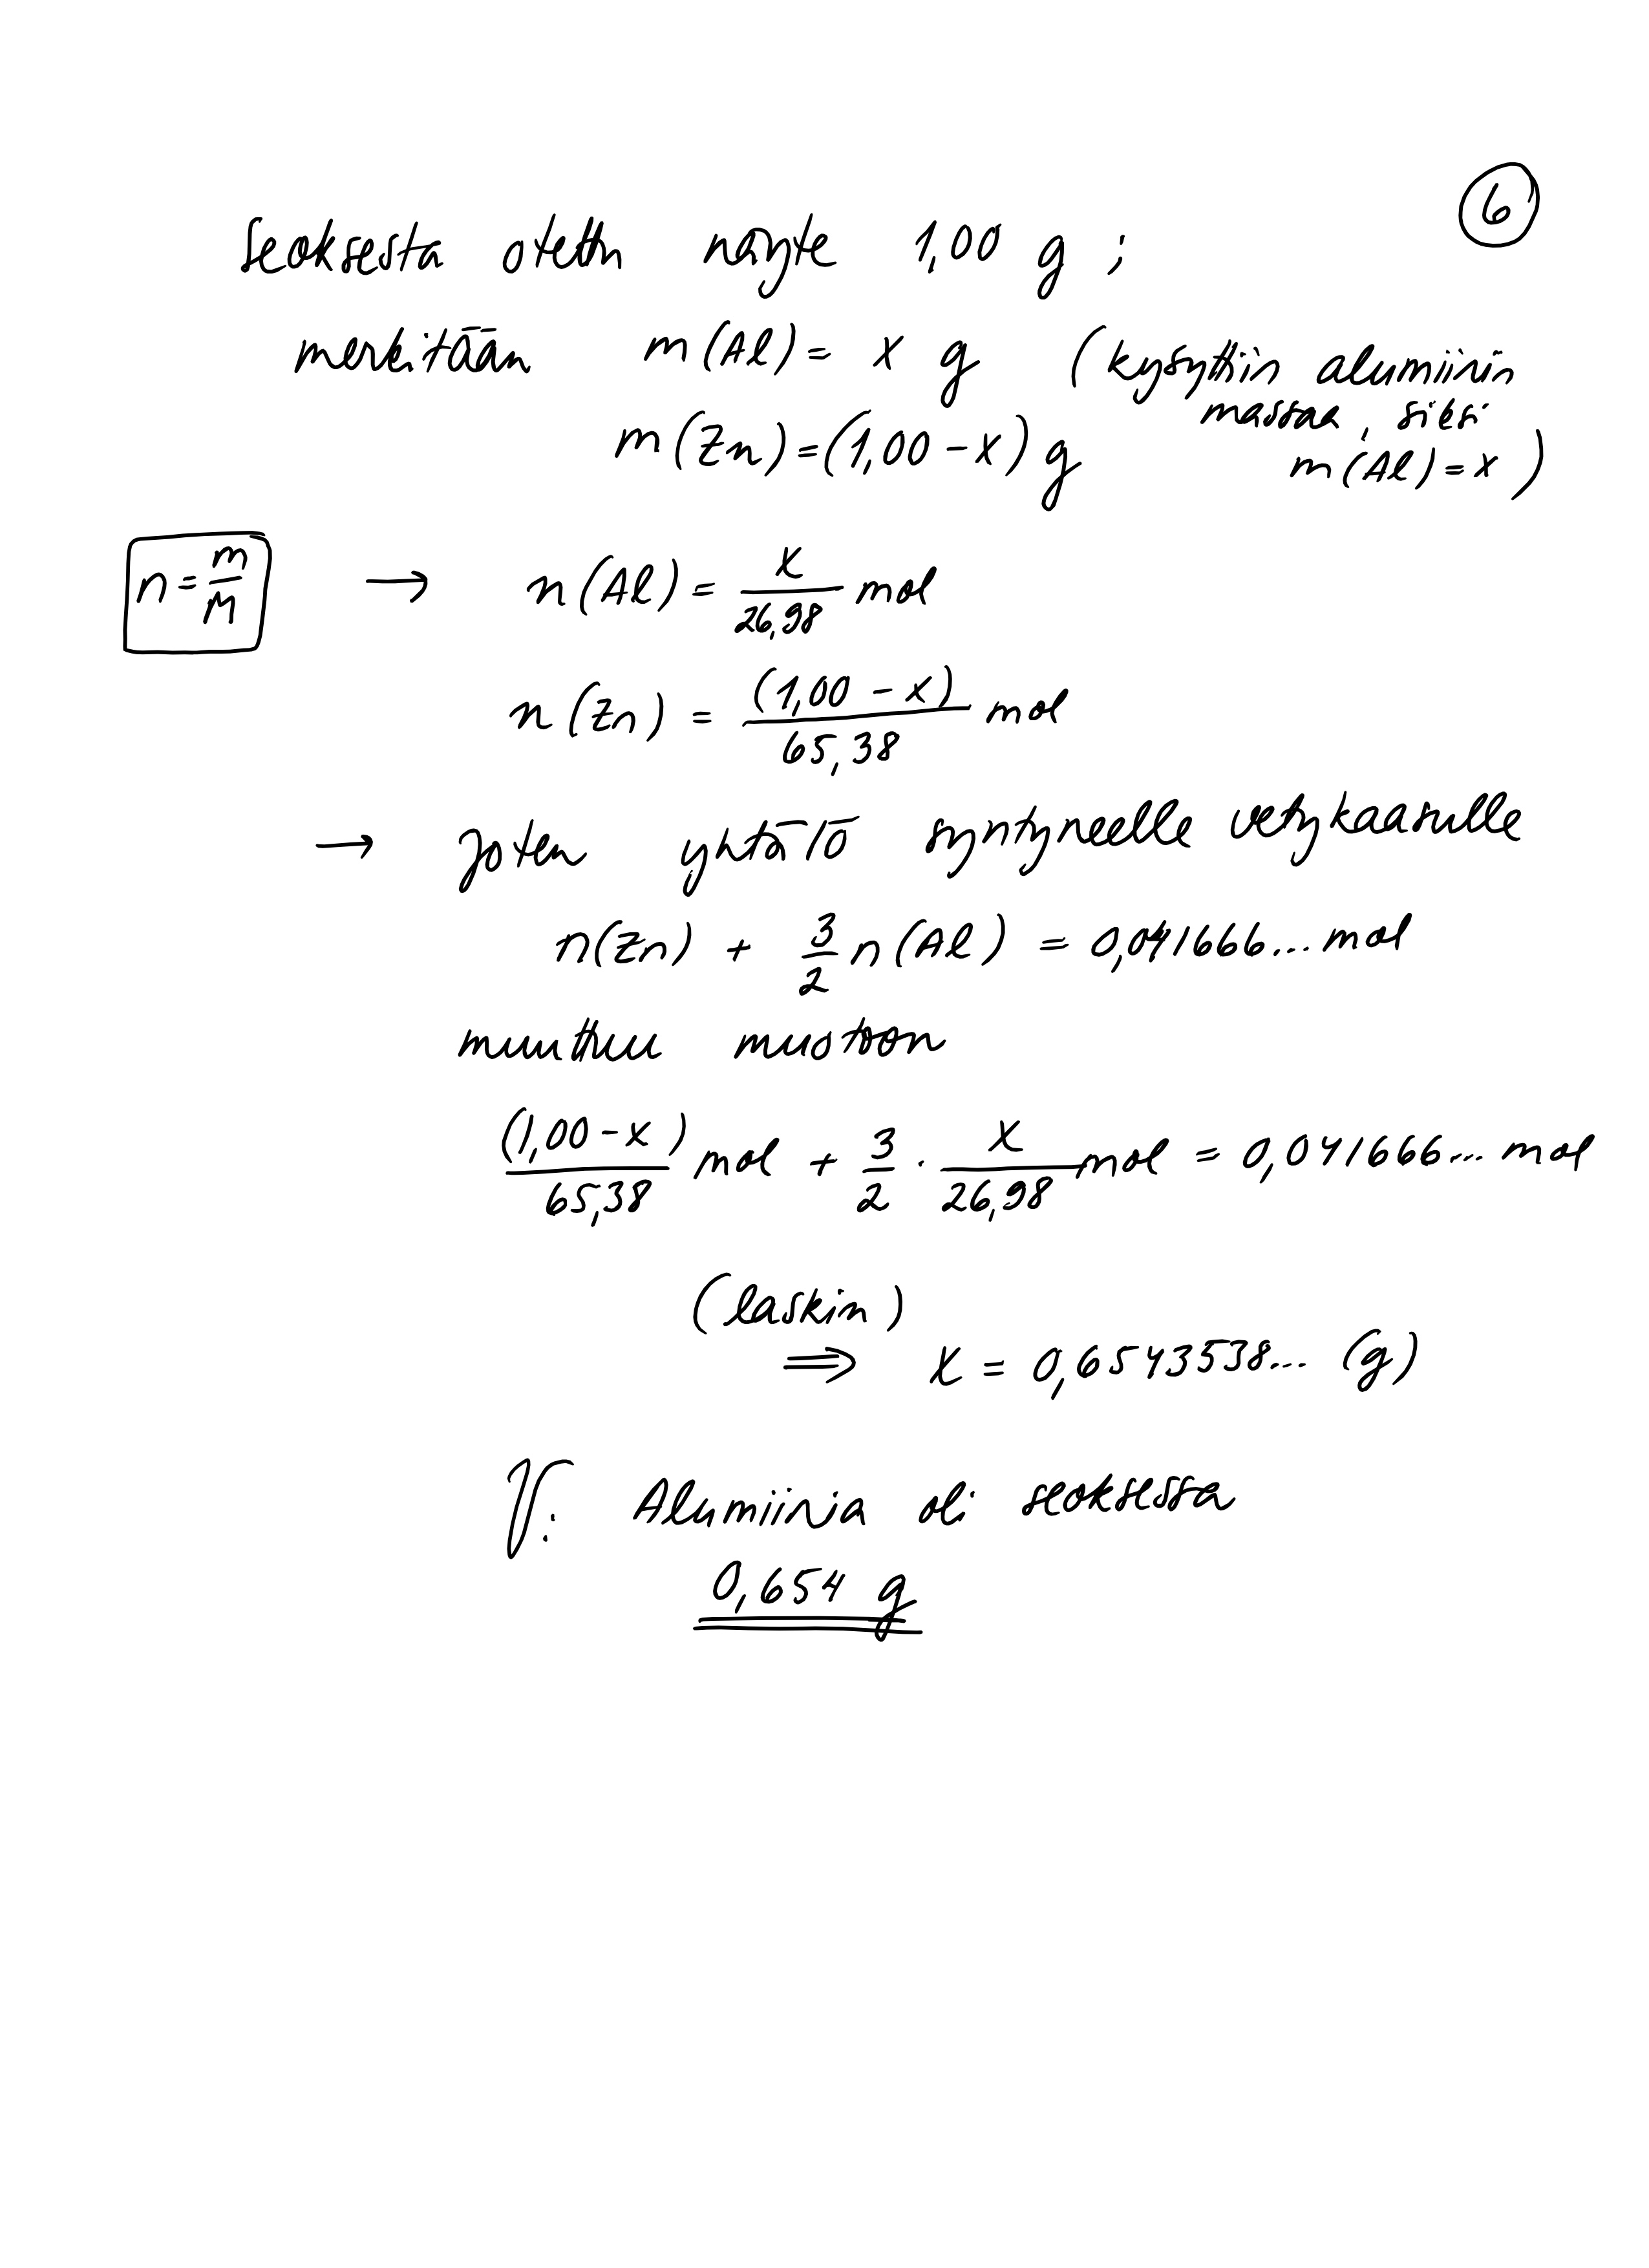 6
Seoksesta otettn näyte 1,00 g ;
merkitään m(Al) = x g (kysyttiin alumiinin
massaa, siksi
m(Zn) = (1,00 - x) g m(Al) = x )
n = m/M → n(Al) = x/26,98 mol
n(Zn) = (1,00 - x)/65,38 mol
→ joten yhtälö syntyneelle vetykaasulle
n(Zn) + 3/2 n(Al) = 0,041666... mol
muuttuu muotoon
(1,00 - x)/65,38 mol + 3/2 · x/26,98 mol = 0,041666... mol
(laskin)
⇒ x = 0,6543538... (g)
V: Alumiinia oli seoksessa
0,654 g